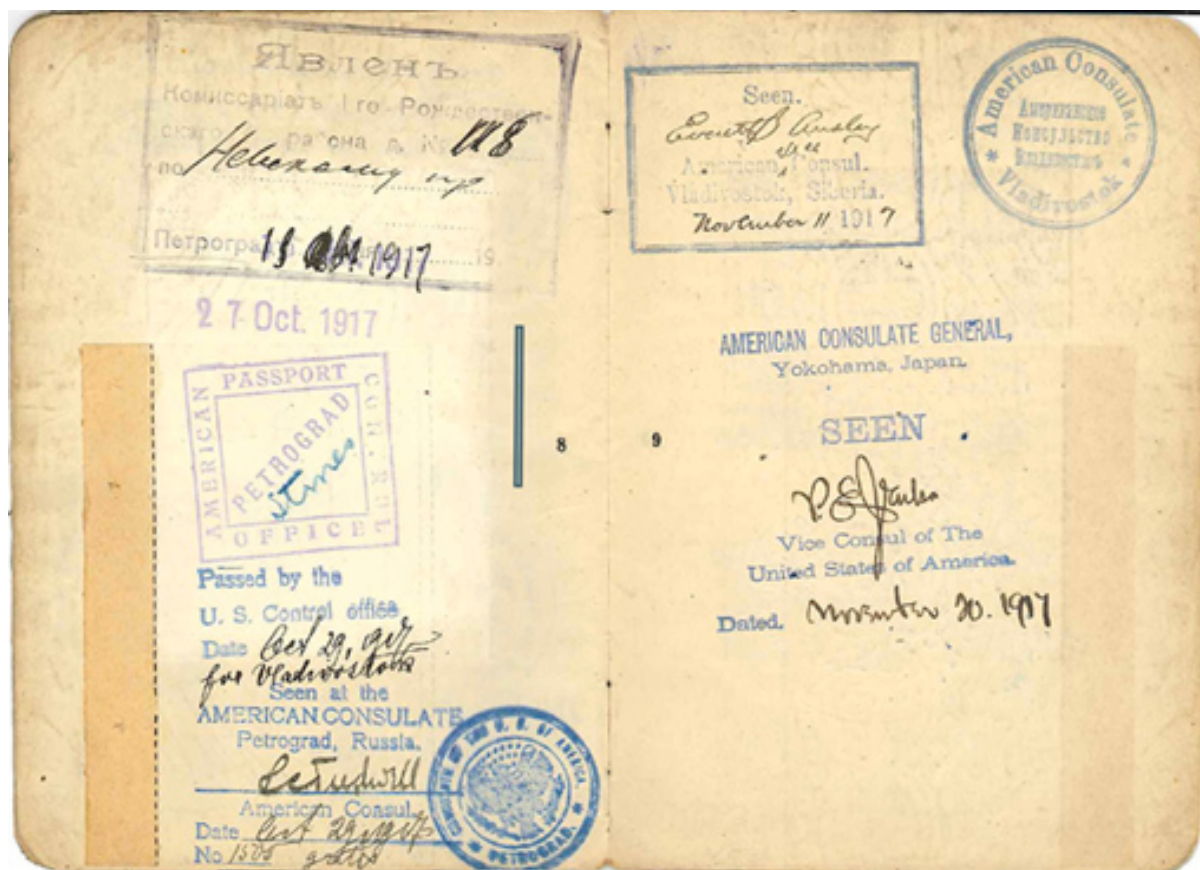 Явленъ
Комиссаріатъ 1 го Рождествен-
скаго района д. № 118
по Невскому пр
Петроград 11 1917 19
27 Oct. 1917
AMERICAN PASSPORT CONTROL OFFICE
PETROGRAD
Passed by the
U. S. Control office
Date Oct 29, 1917
for Vladivostok
Seen at the
AMERICAN CONSULATE
Petrograd, Russia.
American Consul.
Date Oct 29 1917
No 1505 gratis
CONSULATE OF THE U. S. OF AMERICA.
PETROGRAD.
8
Seen.
American Consul.
Vladivostok, Siberia.
November 11 1917
American Consulate
Американское
Консульство
Владивостокъ
Vladivostok
AMERICAN CONSULATE GENERAL,
Yokohama, Japan.
SEEN
9
Vice Consul of The
United States of America.
Dated. November 20. 1917